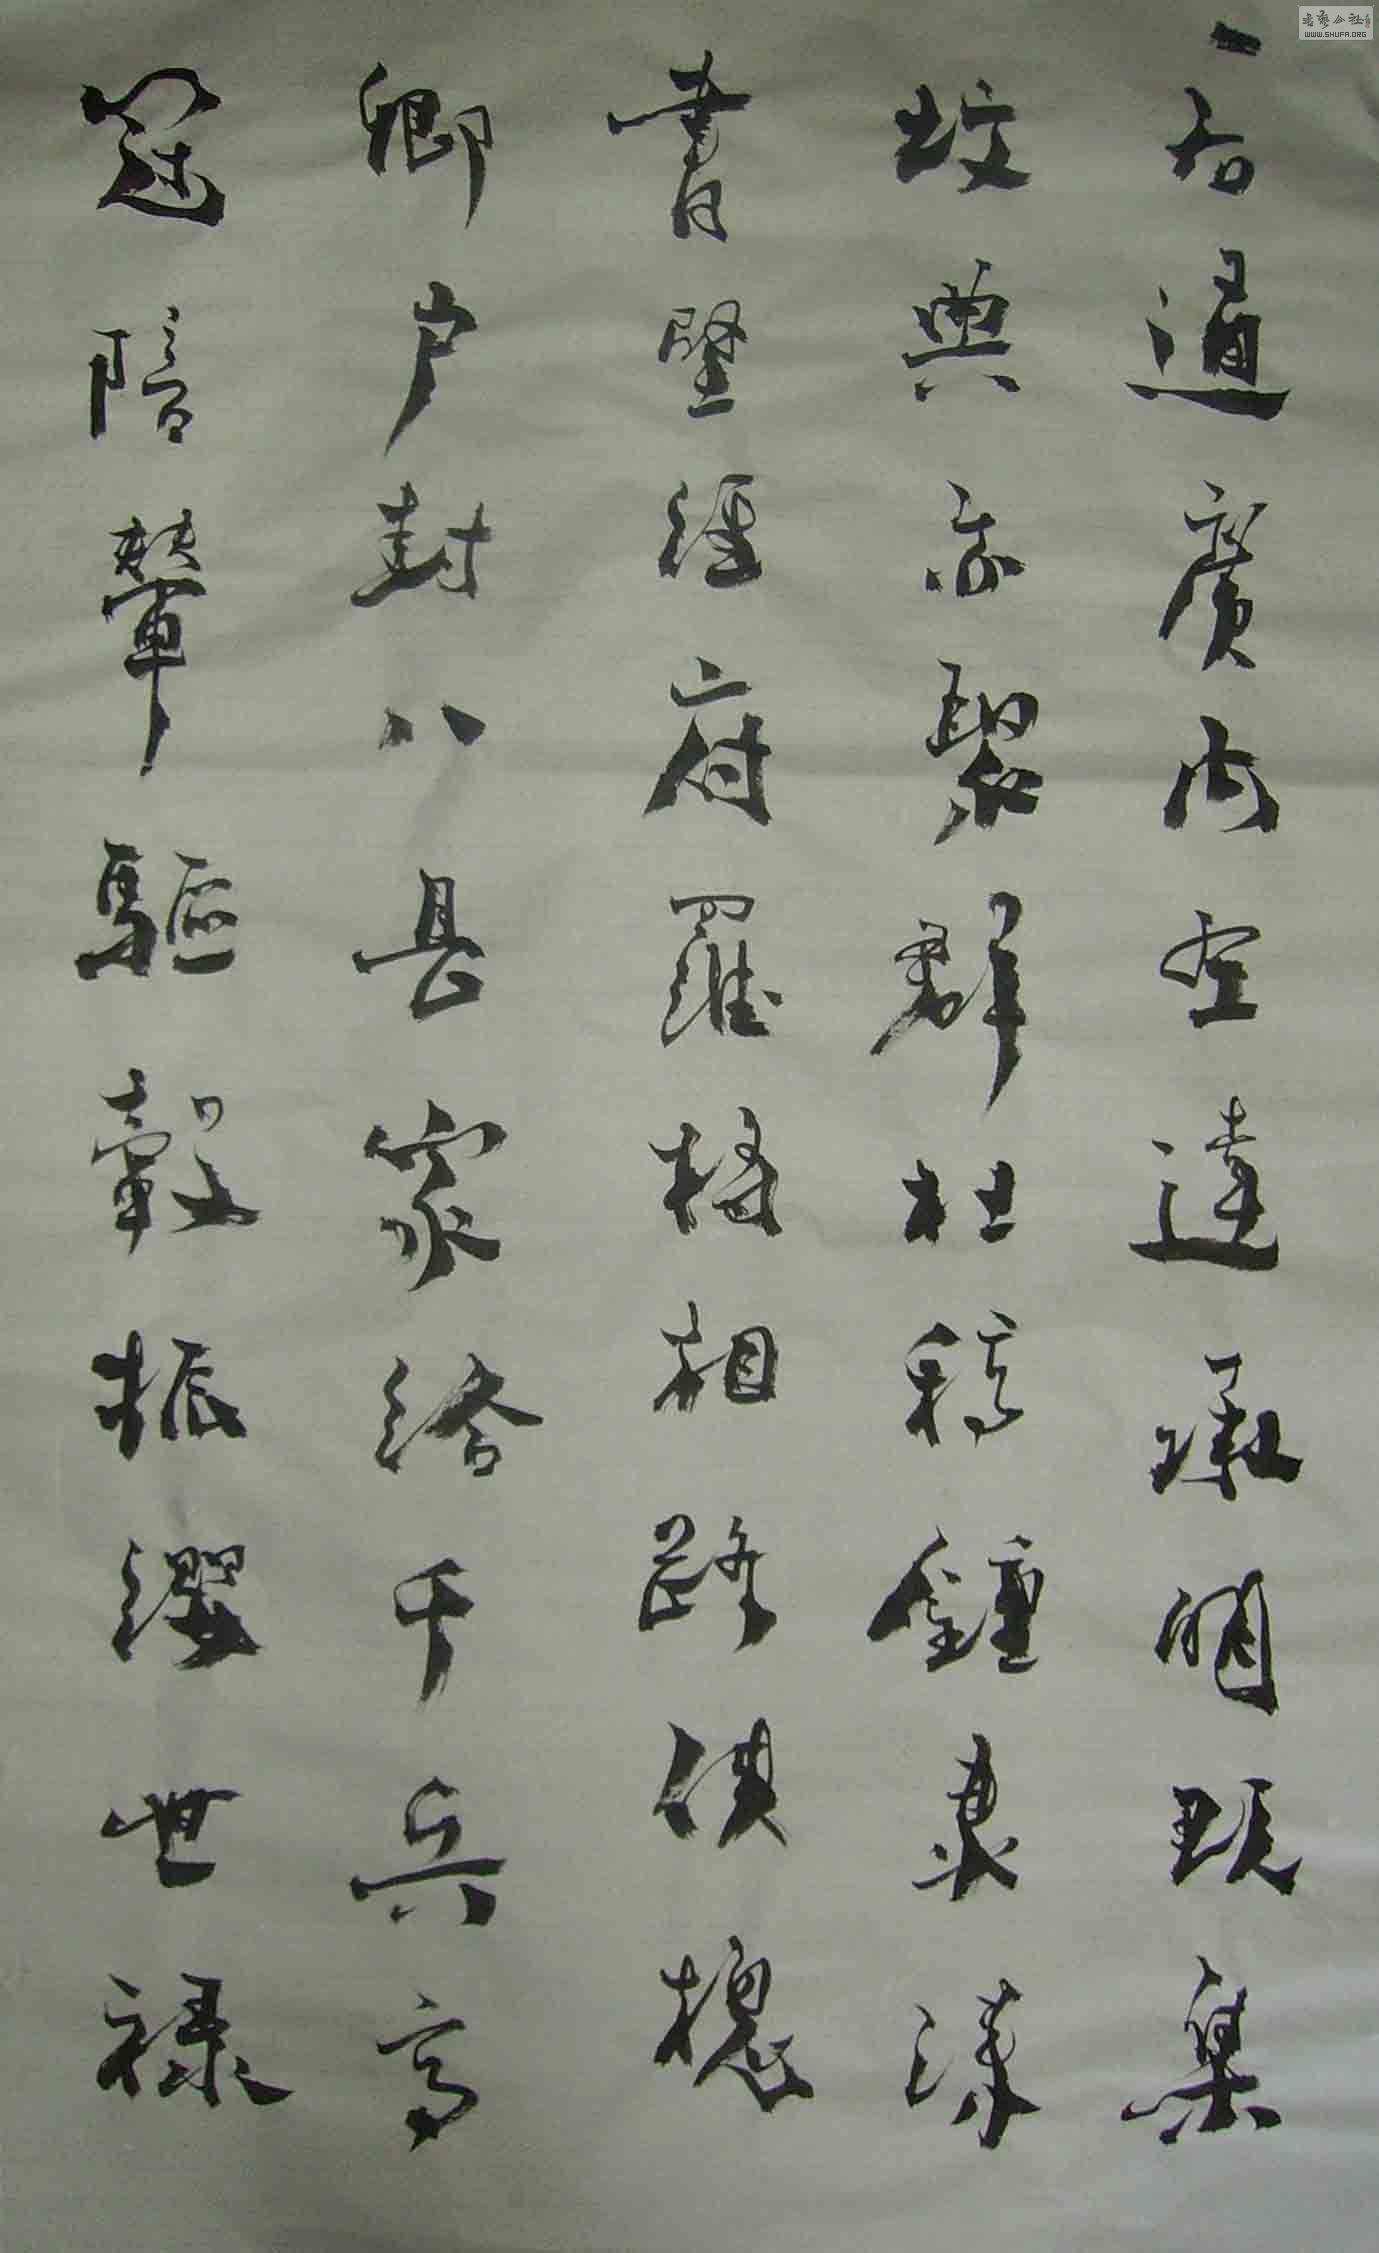 右通廣內左達承明既集
坟典亦聚群杜稿鍾隸漆
書壁經府羅將相路俠槐
卿戶封八县家給千兵高
冠陪輦驅轂振纓世祿
書藝公社
WWW.SHUFA.ORG